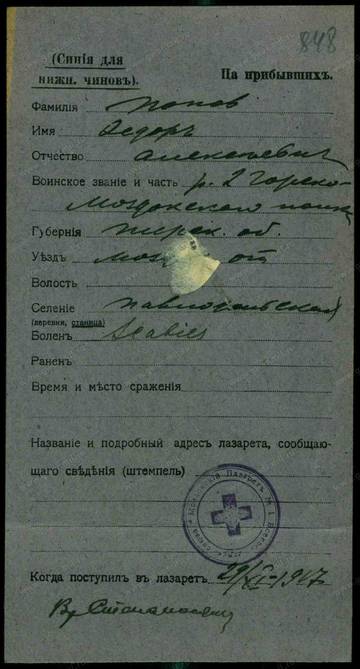 848
(Синія для
нижн. чиновъ).
На прибывшихъ.
Фамилія Попов
Имя Ѳедоръ
Отчество Алексѣевич
Воинское званіе и часть р. 2 Горско-
Моздокского полка
Губернія Терск. об.
Уѣздъ от
Волость
Селеніе Павлодольская
(деревня, станица)
Боленъ Scabies
Раненъ
Время и мѣсто сраженія
Названіе и подробный адресъ лазарета, сообщаю-
щаго свѣдѣнія (штемпель)
Когда поступилъ въ лазаретъ 29/XI-1917
Вр.